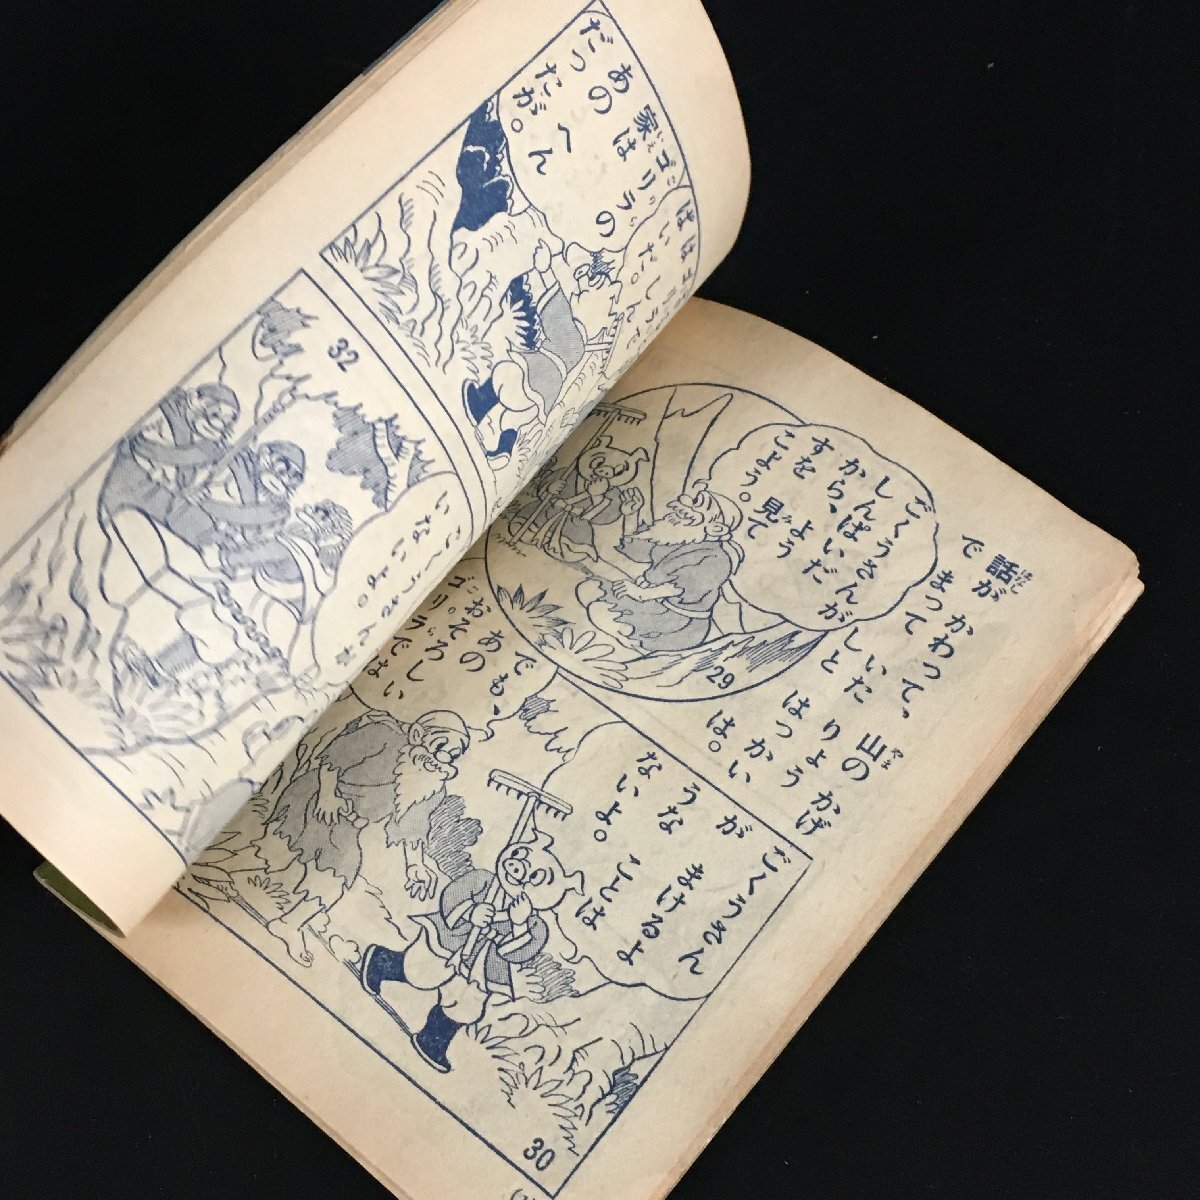 話が かわって、山の かげ
で まって いた りょう
しと はっかい
は。
ごくうさんが
しんぱいだ
から、よう
すを 見て
こよう。
29
ごくうさん
が まけるよ
うな ことは
ないよ。
でも、
あの
おそろしい
ゴリラでは
30
ゴリラの
家は
あの へん
だったが。
いないよ。
32